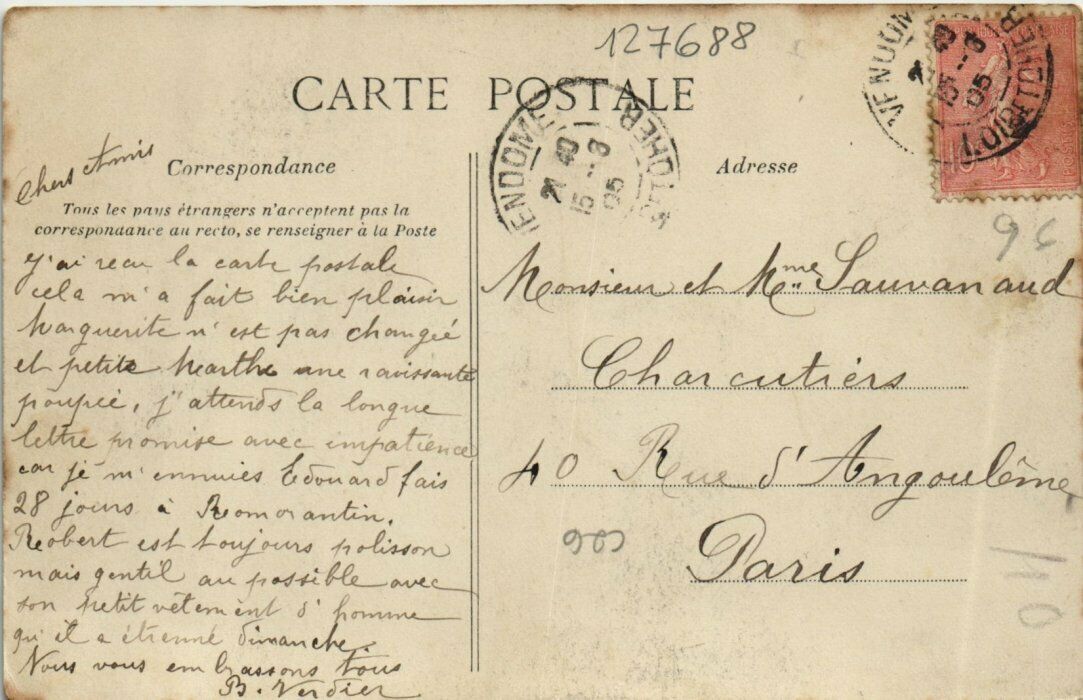 127688
CARTE POSTALE
VENDOME
21 40
15 -8
05
LOIR-ET-CHER
VENDOME
15 -8
05
LOIR-ET-CHER
Correspondance
Adresse
Tous les pays étrangers n'acceptent pas la
correspondance au recto, se renseigner à la Poste
Chers Amis
J'ai reçu la carte postale
cela m'a fait bien plaisir
Marguerite n'est pas changée
et petite Marthe une ravissante
poupée, j'attends la longue
lettre promise avec impatience
car je m'ennuies Edouard fais
28 jours à Romorantin.
Robert est toujours polisson
mais gentil au possible avec
son petit vêtement d'homme
qu'il a étrenné dimanche.
Nous vous embrassons tous
B. Verdier
Monsieur et Mme Sauvanaud
Charcutiers
40 Rue d'Angoulême
Paris